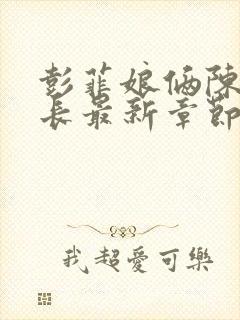 彭菲娘俩陳
長最新章節
我超愛可樂